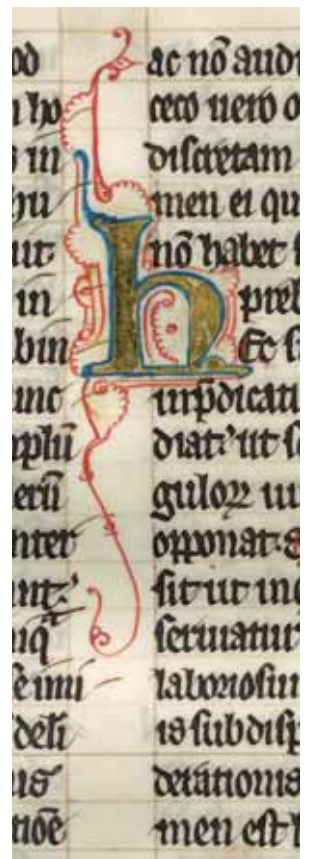 od
ho
in
hu
ut
in
bin
unc
plū
erū
nter
unt
nq̄
imi
deli
us
tiōe
ac nō audi
ceco uero o
discretam
men ei qu
nō habet
h
preb
Ec
in p̄dicati
diat: ut
guloꝝ ui
opponat:
sit ut in
seruatur
laborioſu
is sub disp
derationis
men est